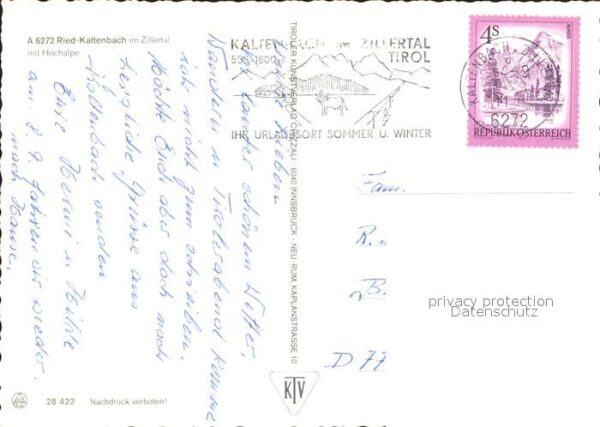 A 6272 Ried-Kaltenbach im Zillertal
mit Hochalpe
KALTENBACH im ZILLERTAL
558-1800 TIROL
IHR URLAUBSORT SOMMER U. WINTER
4S
REPUBLIK ÖSTERREICH
KALTENBACH
6272
lauter schönem Wetter,
Wandern u. Tirolerabend komme
ich nicht zum schreiben.
Möchte Euch aber doch noch
herzliche Grüsse aus
Kaltenbach senden
Eure Hermi u.
am 8. 9. fahren wir wieder
nach Hause.
TIROLER KUNSTVERLAG CHIZZALI · 6040 INNSBRUCK - NEU-RUM KAPLANSTRASSE 10
Fam.
R.
B.
D 77
privacy protection
Datenschutz
KTV
28 422 Nachdruck verboten!